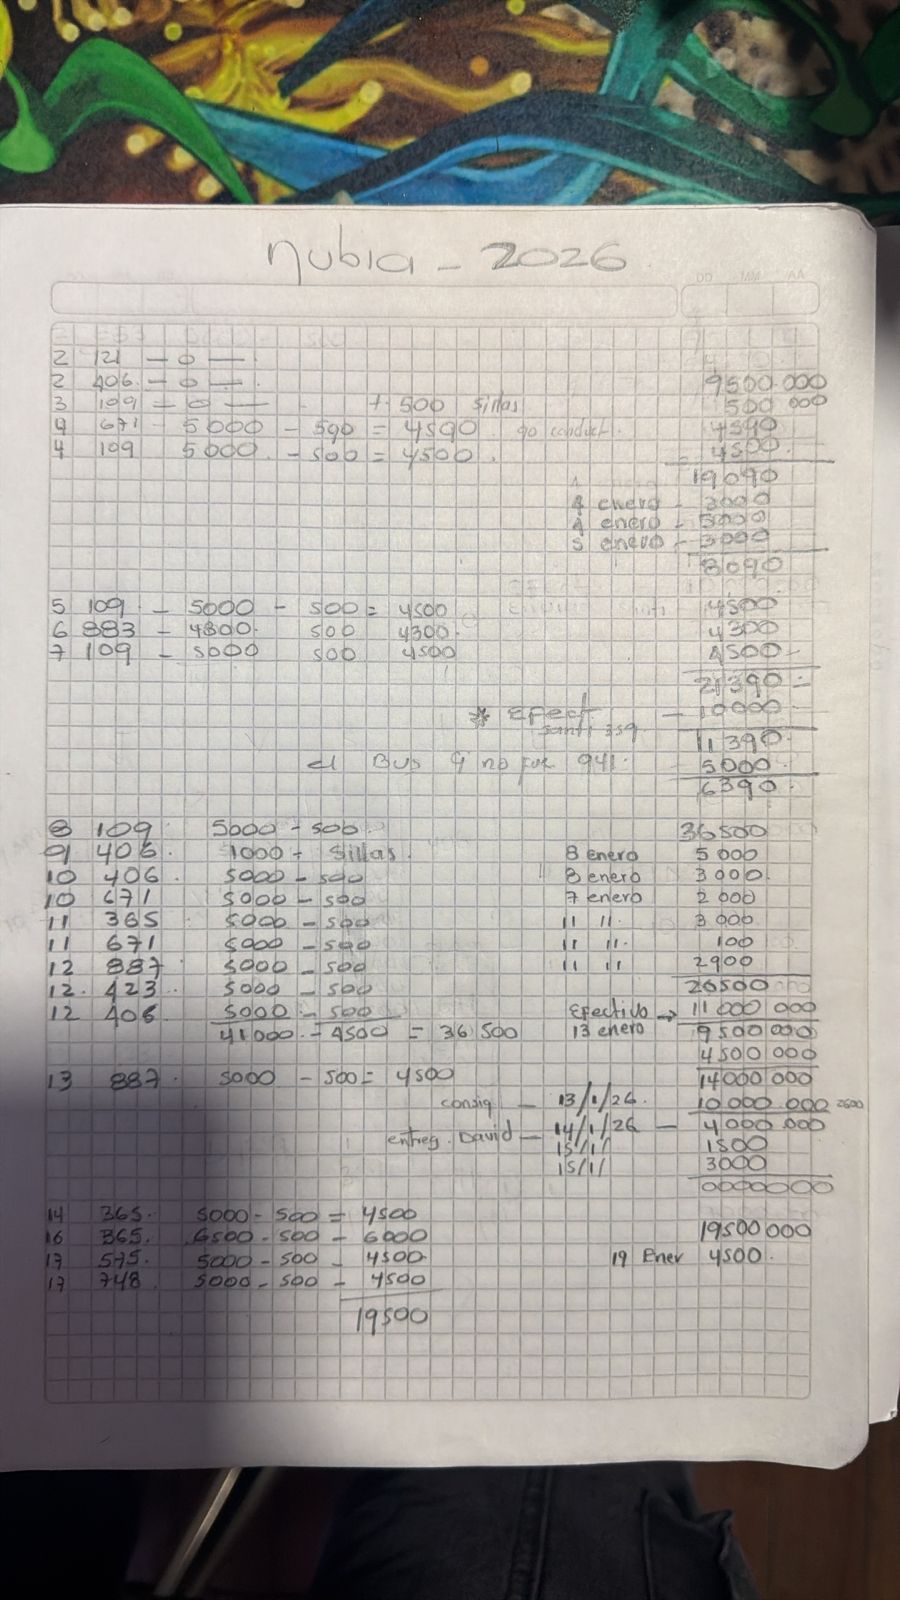 nubia - 2026
DD MM AA
2 121 - 0 -
2 406. - 0 - . 9500.000
3 109 = 0 - + 500 sillas 500 000
4 671 - 5000 - 590 = 4590 90 conduct. 4590
4 109 5000. - 500 = 4500. 4500.
19090
4 enero - 3000
4 enero - 5000
5 enero - 3000
8090
5 109 - 5000 - 500 = 4500 4500
6 883 - 4800. 500 4300. 4300
7 109 - 5000 500 4500 4500 -
21390 =
* Efect. - 10000 -
santi 359. 11390.
el Bus q no fue 941. 5000.
6390.
8 109. 5000 - 500. 36500
9 406. 1000 - sillas. 8 enero 5000
10 406. 5000 - 500 8 enero 3000.
10 671 5000 - 500 7 enero 2000
11 365 5000 - 500 11 11. 3000
11 671 5000 - 500 11 11. 100
12 887 5000 - 500 11 11 2900
12. 423. 5000 - 500 20500
12 406 5000 - 500 Efectivo → 11000 000
41000. - 4500 = 36500 13 enero 9500 000
4500 000
13 887. 5000 - 500 = 4500 14000 000
consig - 13/1/26. 10000.000 2600
entreg. David - 14/1/26 - 4000.000
15/1/ 1500
15/1/ 3000
0000000
14 365. 5000 - 500 = 4500
16 365. 6500 - 500 - 6000 19500 000
17 575. 5000 - 500 - 4500. 19 Ener 4500.
17 748. 5000 - 500 - 4500
19500